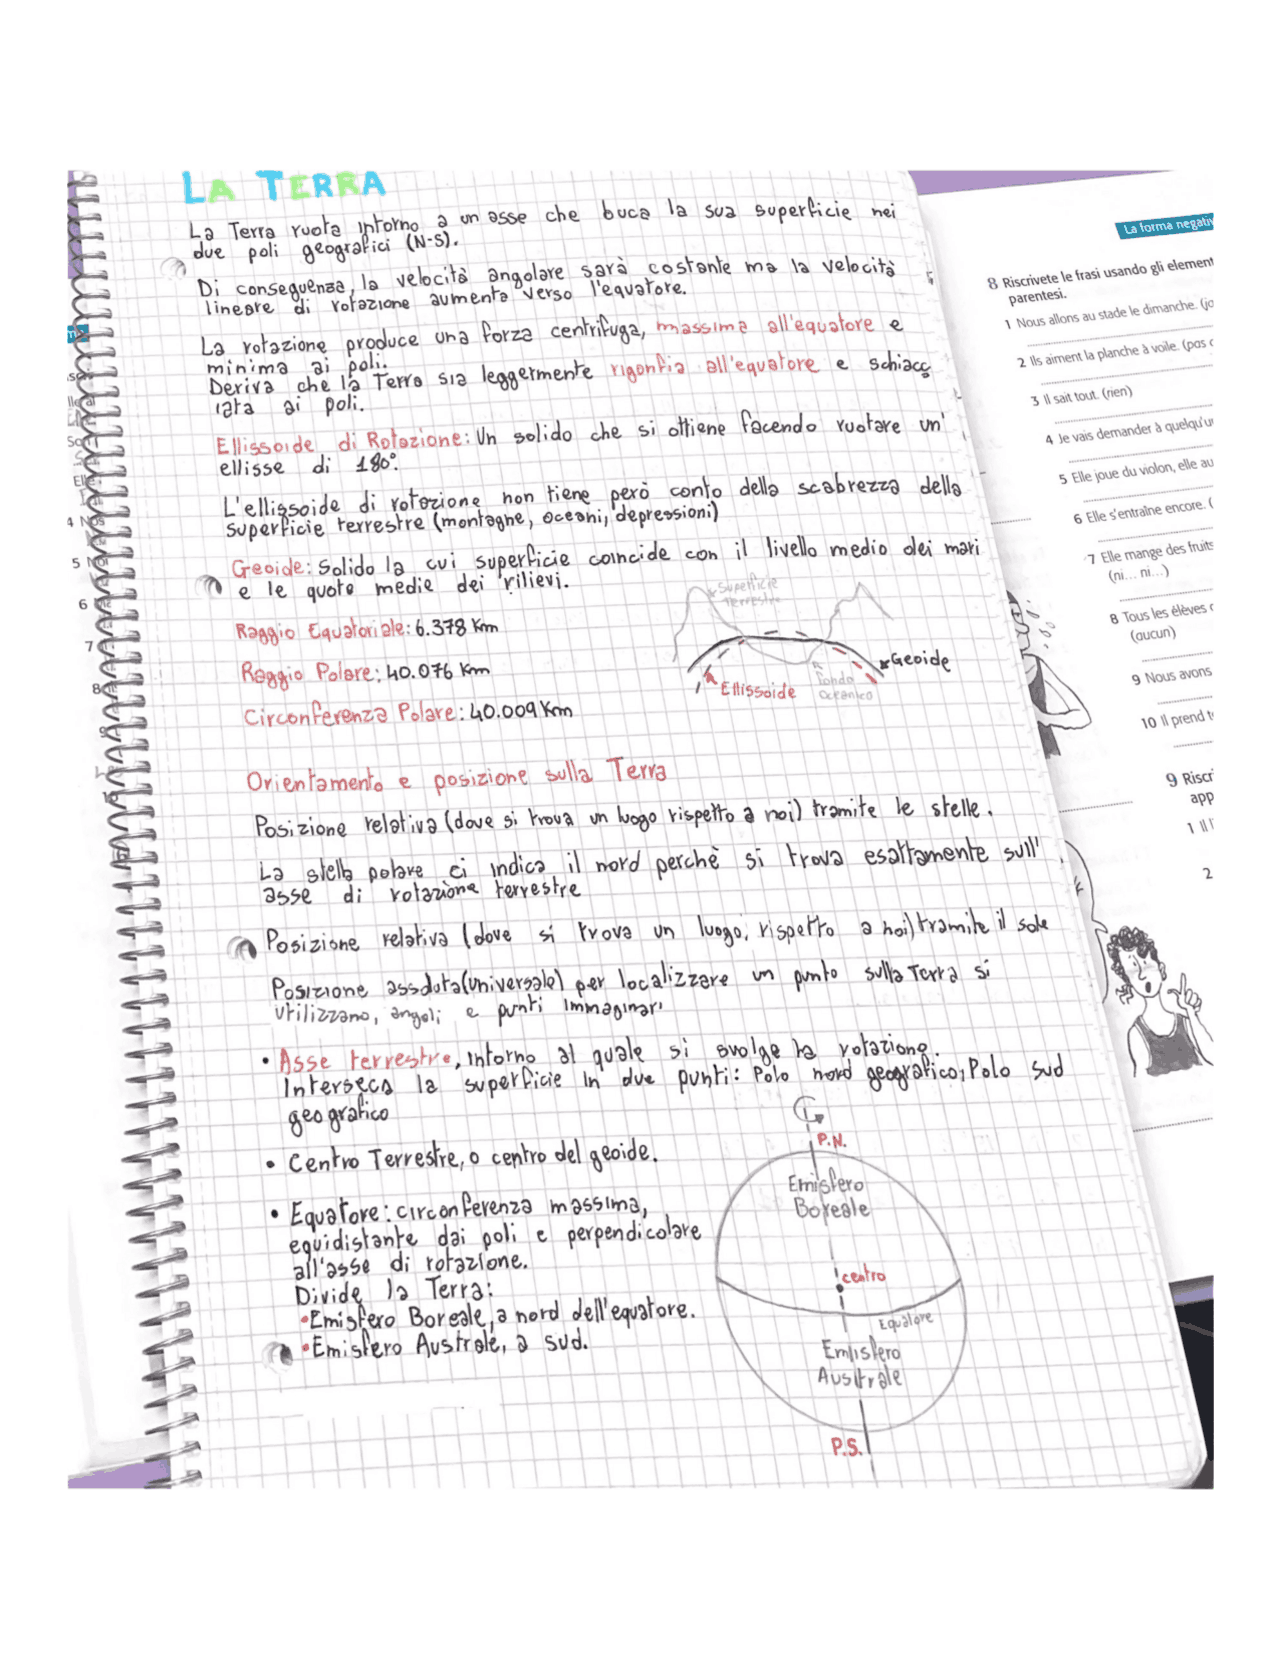 LA TERRA
La Terra ruota intorno a un asse che buca la sua superficie nei
due poli geografici (N-S).
Di conseguenza, la velocità angolare sarà costante ma la velocità
lineare di rotazione aumenta verso l'equatore.
La rotazione produce una forza centrifuga, massima all'equatore e
minima ai poli.
Deriva che la Terra sia leggermente rigonfia all'equatore e schiacc
iata ai poli.
Ellissoide di Rotazione: Un solido che si ottiene facendo ruotare un'
ellisse di 180°.
L'ellissoide di rotazione non tiene però conto della scabrezza della
superficie terrestre (montagne, oceani, depressioni)
Geoide: Solido la cui superficie coincide con il livello medio dei mari
e le quote medie dei rilievi.
Superficie
Terrestre
Raggio Equatoriale: 6.378 Km
Raggio Polare: 40.076 Km
Circonferenza Polare: 40.009 Km
Geoide
Ellissoide
fondo
oceanico
Orientamento e posizione sulla Terra
Posizione relativa (dove si trova un luogo rispetto a noi) tramite le stelle.
La stella polare ci indica il nord perchè si trova esattamente sull'
asse di rotazione terrestre
Posizione relativa (dove si trova un luogo, rispetto a noi) tramite il sole
Posizione assoluta (universale) per localizzare un punto sulla Terra si
utilizzano, angoli e punti immaginari
• Asse terrestre, intorno al quale si svolge la rotazione.
Interseca la superficie in due punti: Polo nord geografico; Polo sud
geografico
• Centro Terrestre, o centro del geoide.
• Equatore: circonferenza massima,
equidistante dai poli e perpendicolare
all'asse di rotazione.
Divide la Terra:
• Emisfero Boreale, a nord dell'equatore.
• Emisfero Australe, a sud.
P.N.
Emisfero
Boreale
centro
Equatore
Emisfero
Australe
P.S.
La forma negativ
8 Riscrivete le frasi usando gli element
parentesi.
1 Nous allons au stade le dimanche. (jo
2 Ils aiment la planche à voile. (pas
3 Il sait tout. (rien)
4 Je vais demander à quelqu'u
5 Elle joue du violon, elle au
6 Elle s'entraîne encore. (
7 Elle mange des fruits
(ni... ni...)
8 Tous les élèves
(aucun)
9 Nous avons
10 Il prend t
9 Riscr
app
1 Il
2
4 Nos
5 N
6
7
8